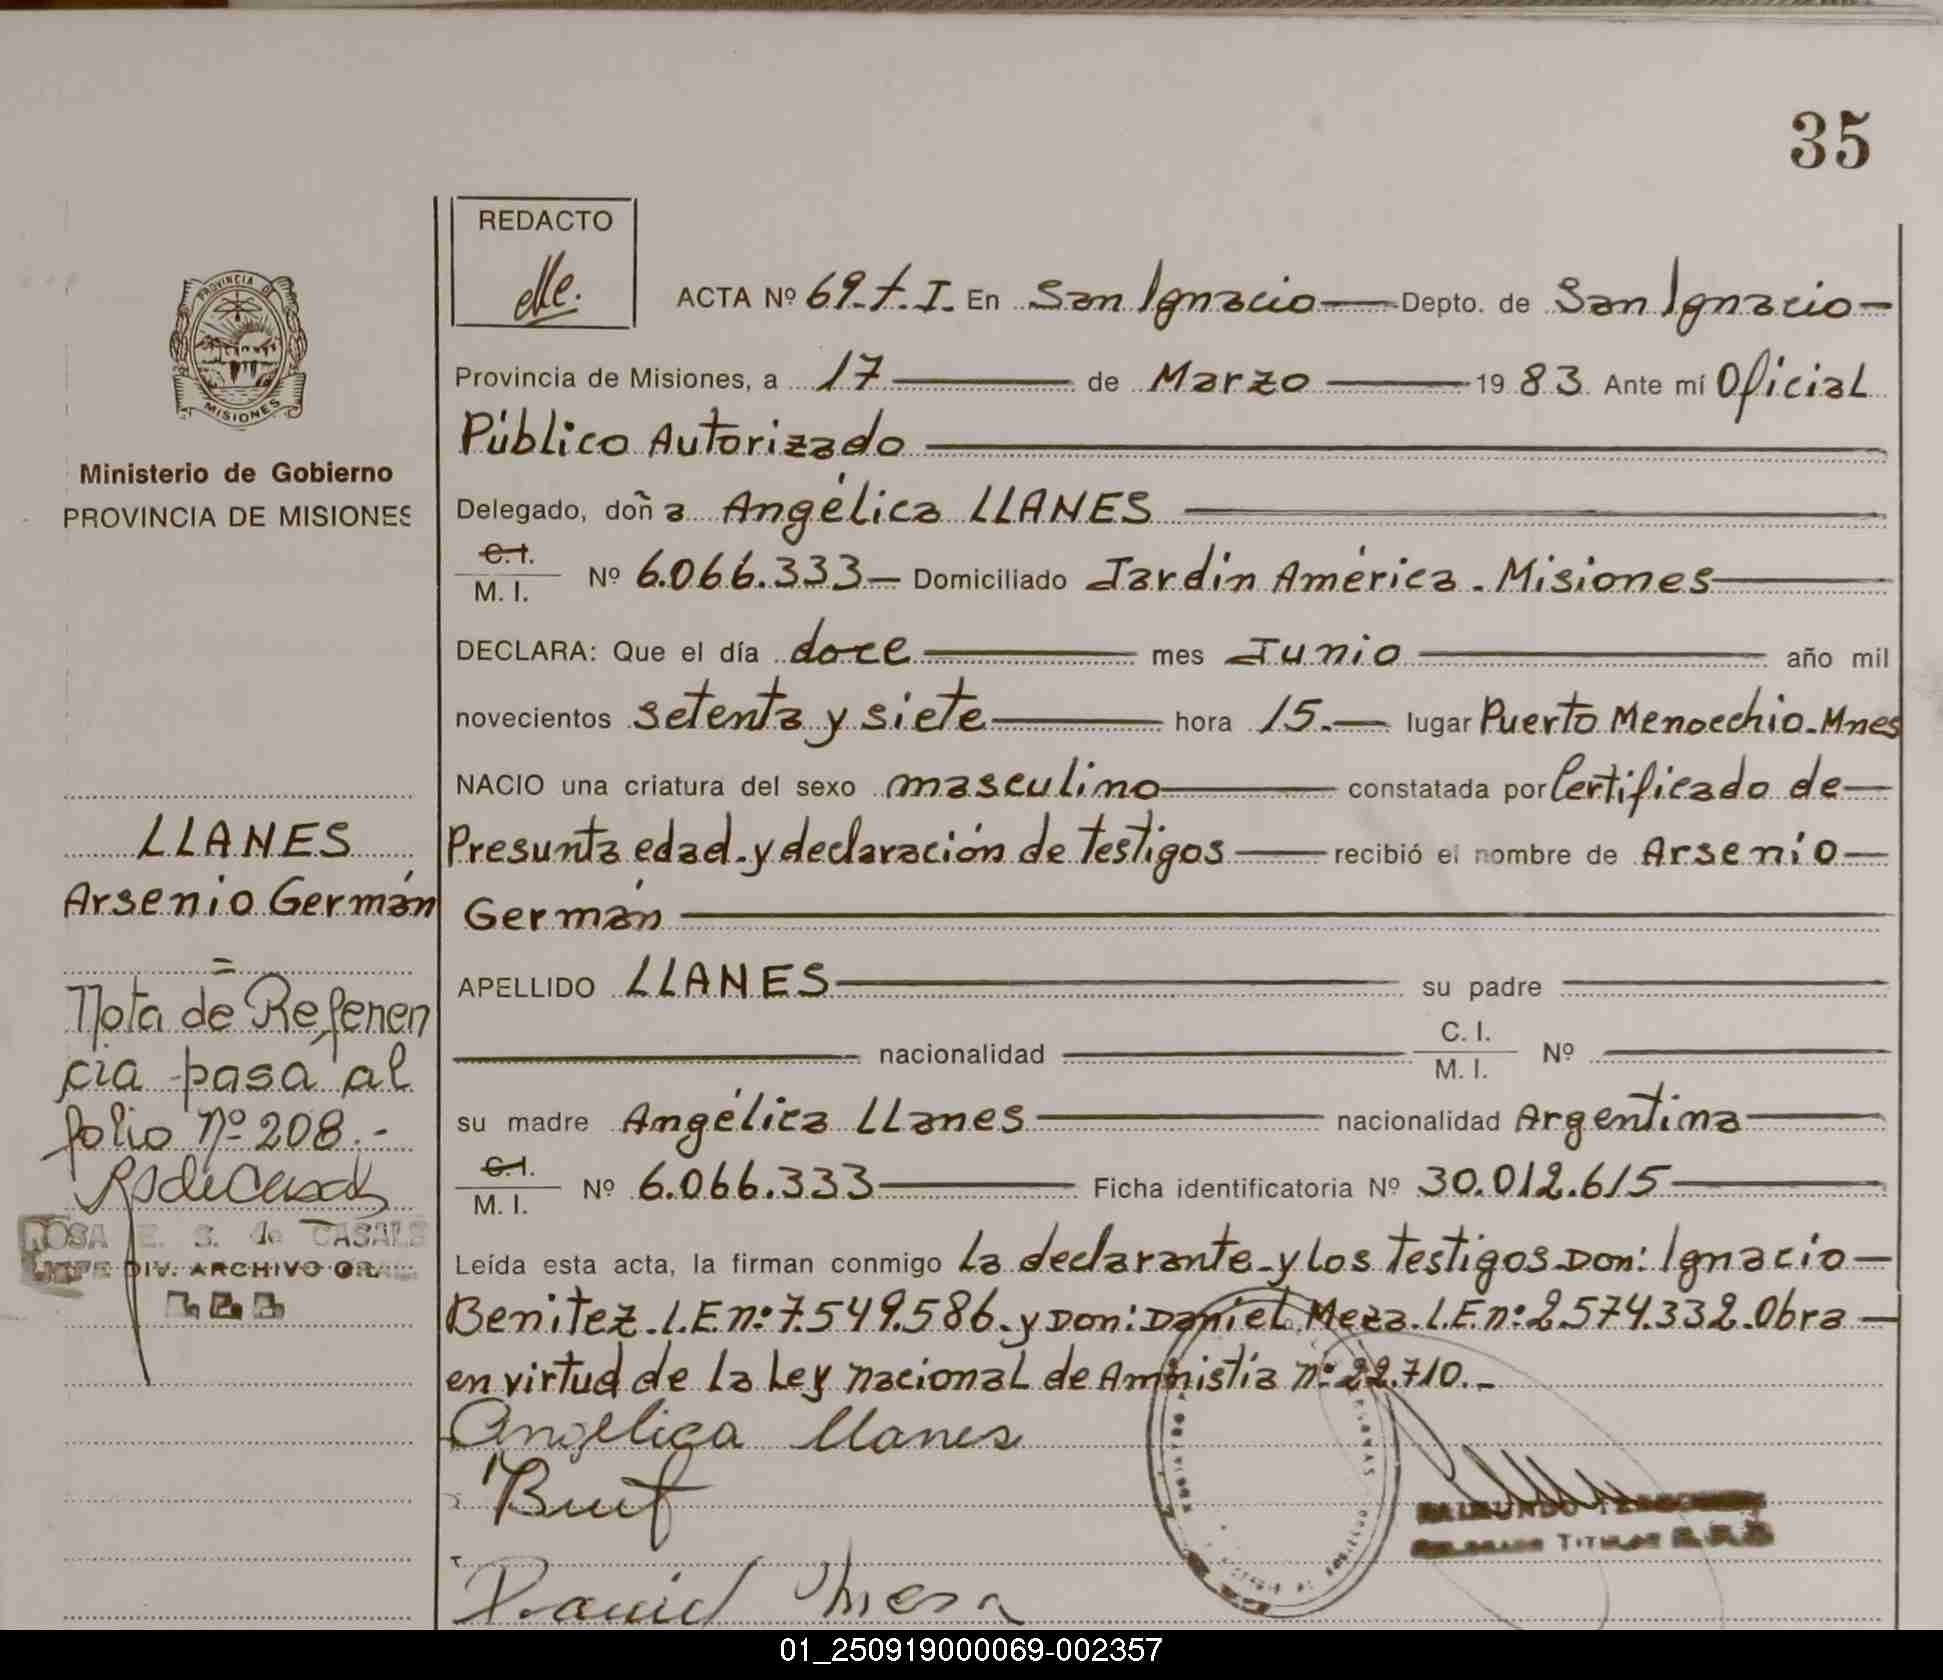 35
REDACTO
ACTA Nº 69.-t.I. En San Ignacio Depto. de San Ignacio
PROVINCIA DE
MISIONES
Provincia de Misiones, a 17 de Marzo 1983. Ante mí Oficial
Público Autorizado
Ministerio de Gobierno
PROVINCIA DE MISIONES
Delegado, doña Angélica LLANES
C.I.
M. I. Nº 6.066.333 Domiciliado Jardín América. Misiones
DECLARA: Que el día doce mes Junio año mil
novecientos setenta y siete hora 15. lugar Puerto Menocchio. Mnes
NACIO una criatura del sexo masculino constatada por Certificado de
Presunta edad. y declaración de testigos recibió el nombre de Arsenio
Germán
LLANES
Arsenio Germán
APELLIDO LLANES su padre
nacionalidad C. I.
M. I. Nº
su madre Angélica LLanes nacionalidad Argentina
C.I.
M. I. Nº 6.066.333 Ficha identificatoria Nº 30.012.615
Leída esta acta, la firman conmigo la declarante y los testigos Don: Ignacio
Benitez. L.E nº: 7.549.586. y Don: Daniel Meza. L.E. nº: 2.574.332. Obra
en virtud de la Ley nacional de Amnistía nº 22.710.-
Nota de Referen
cia pasa al
folio Nº 208.-
ROSA E. S. de CASALS
JEFE DIV. ARCHIVO GRAL
Angelica llanes
Daniel Mesa
RAIMUNDO
DELEGADO TITULAR
01_250919000069-002357